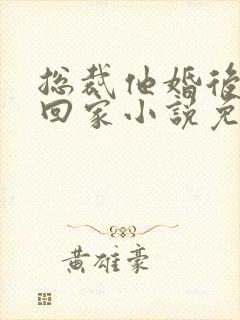 总裁他婚後
回家小說免
黃雄豪